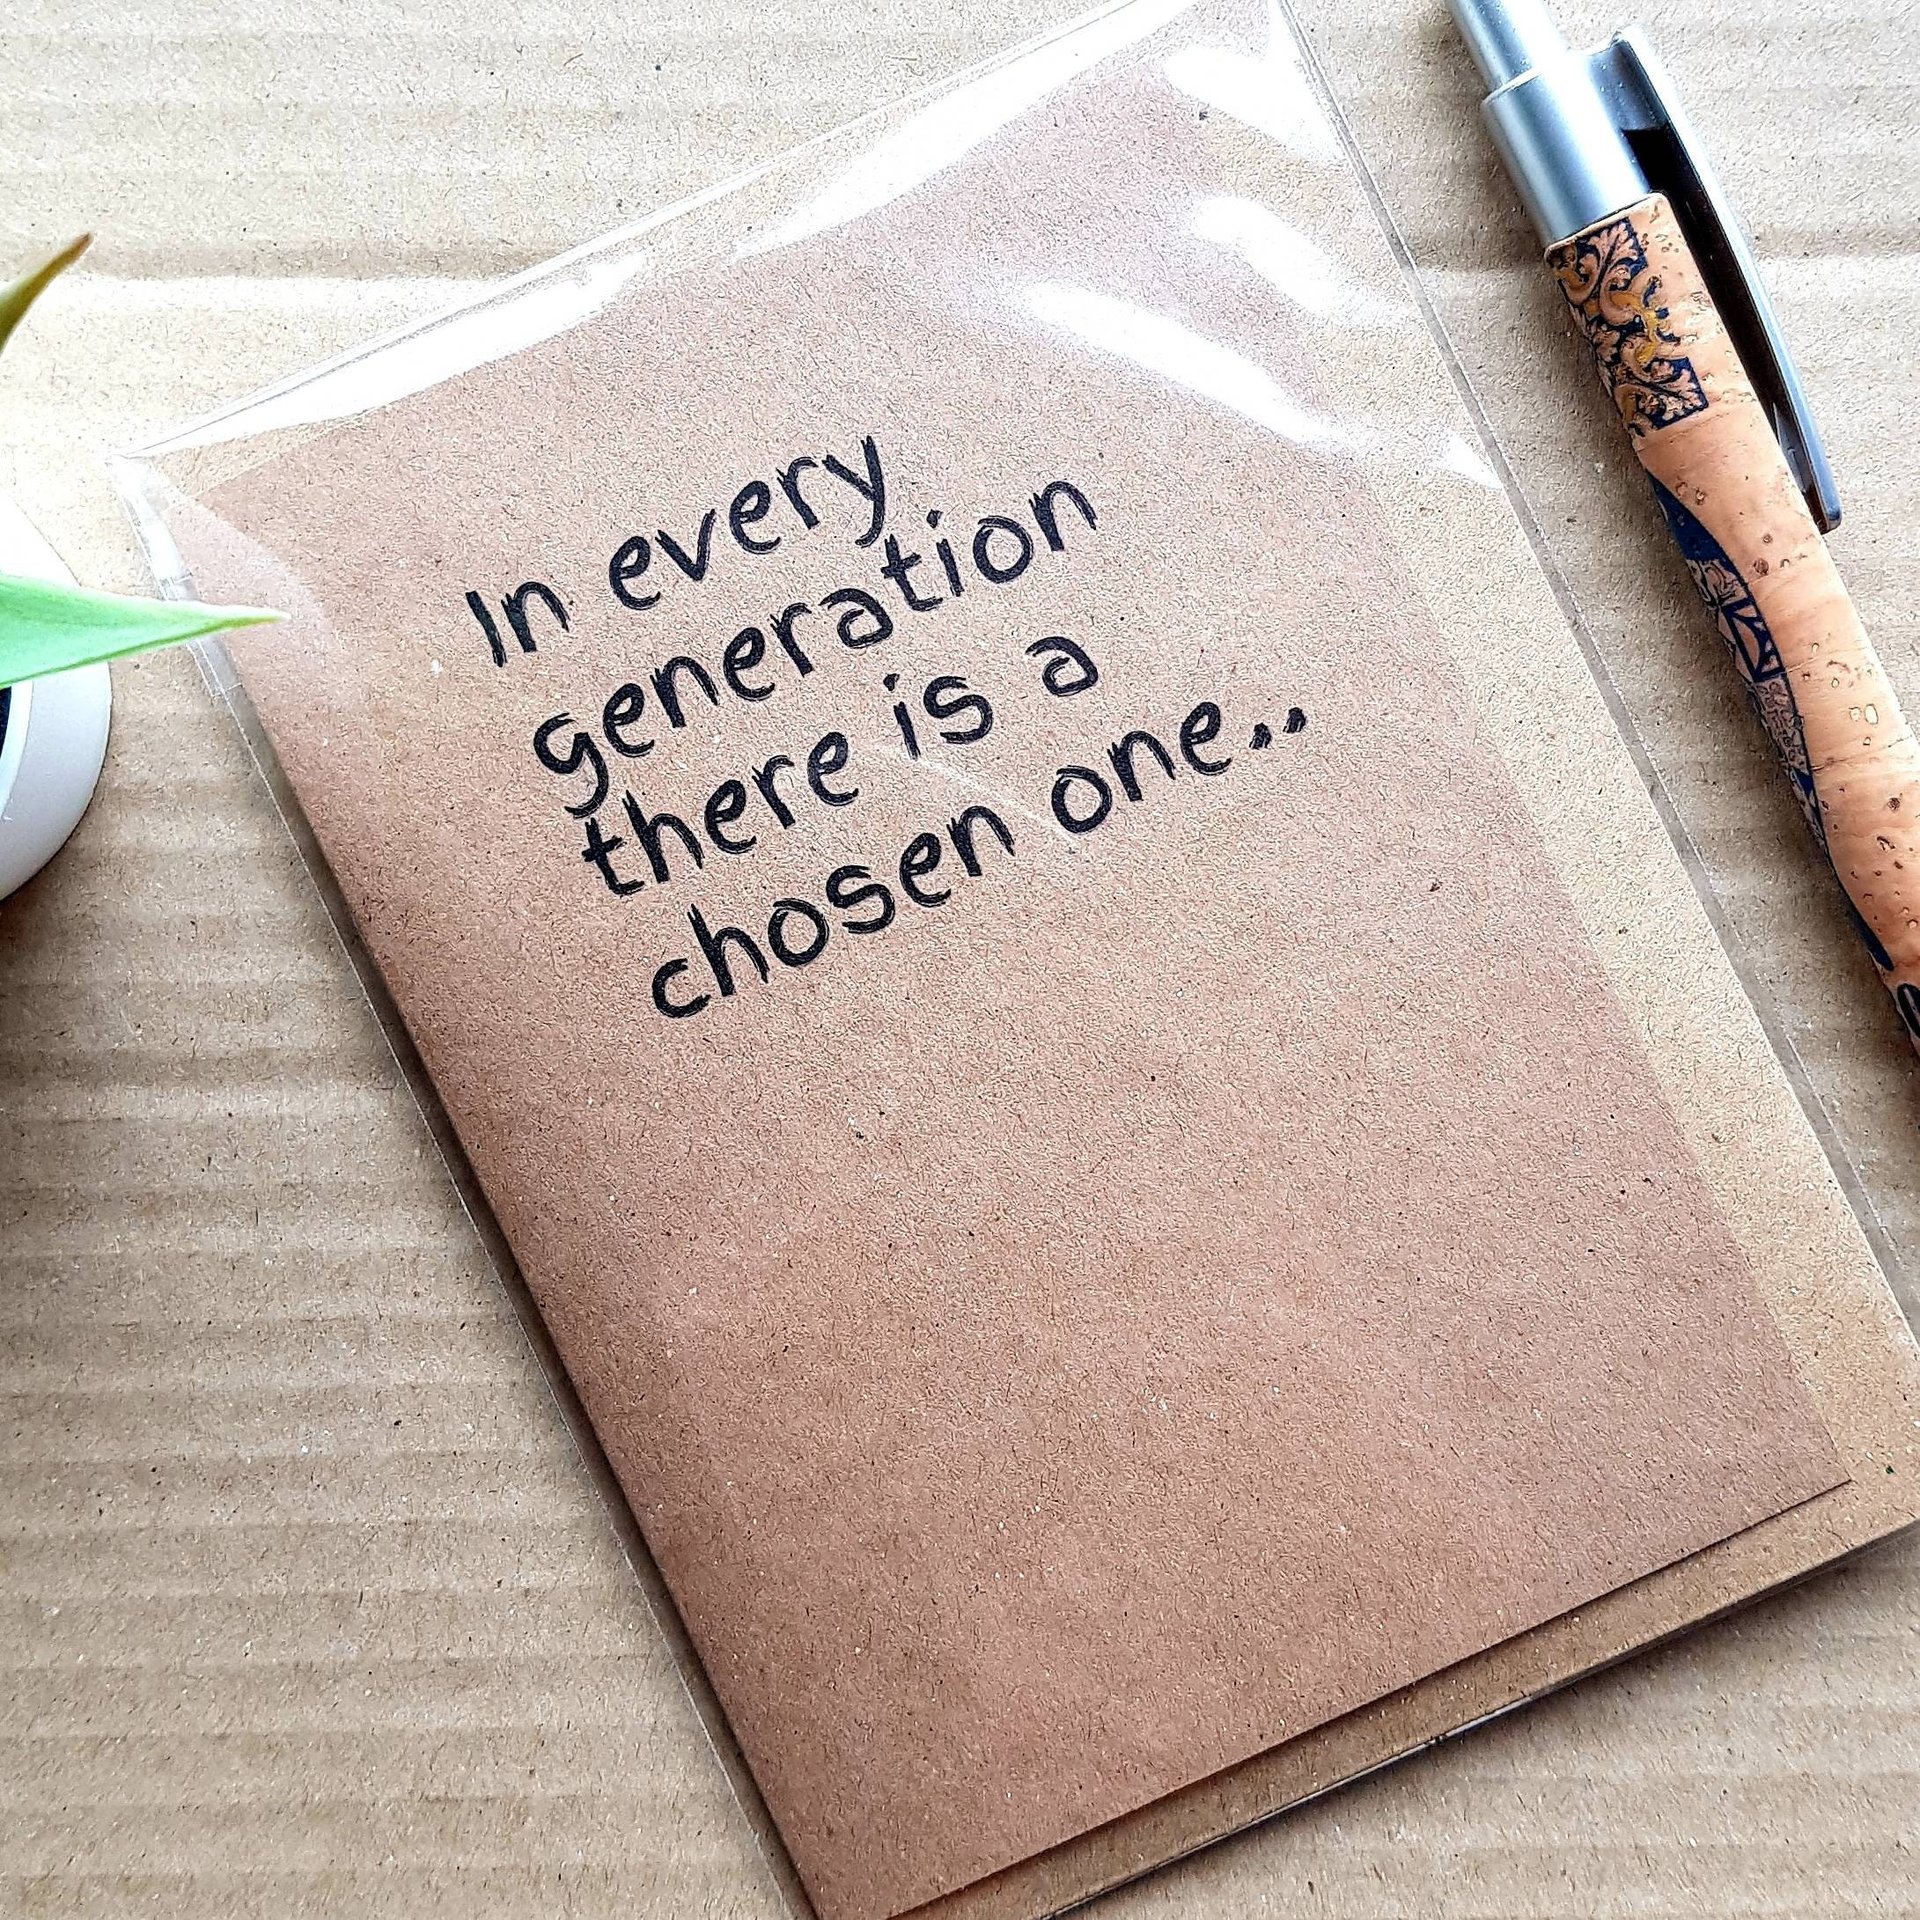 In every
generation
there is a
chosen one..